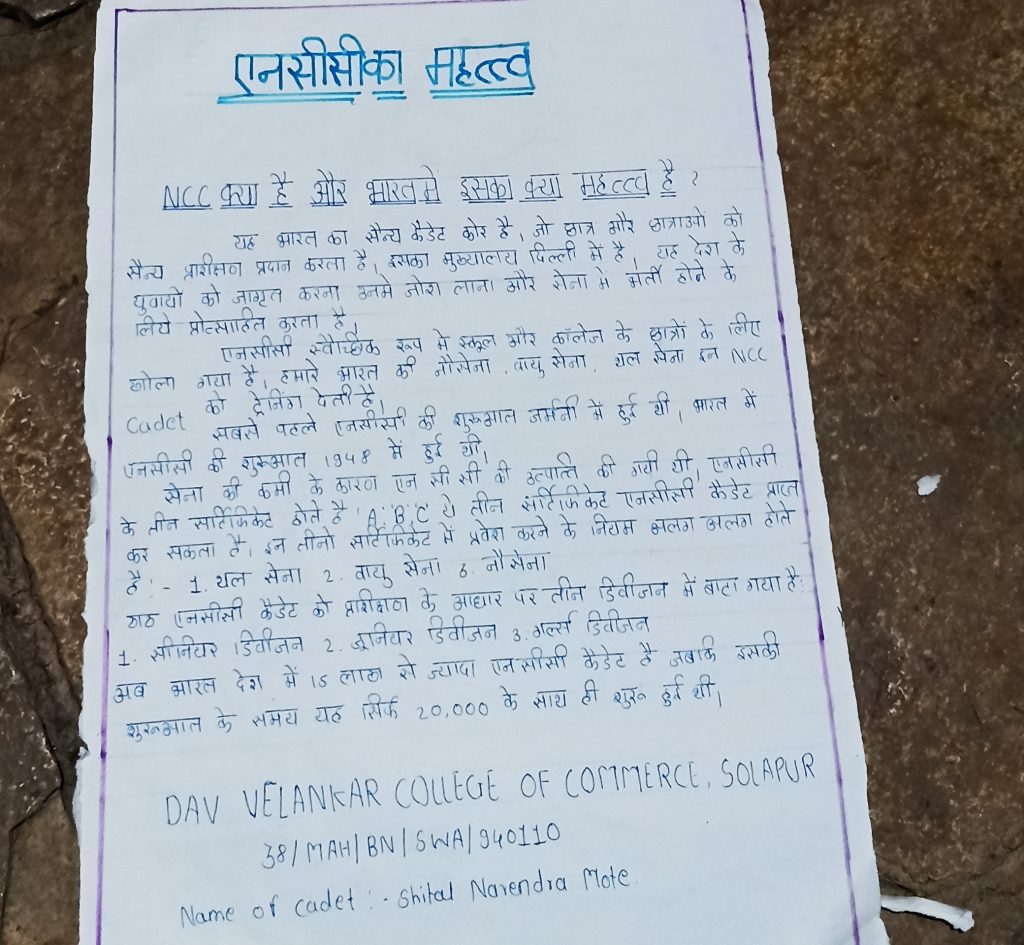 एनसीसीका महत्त्व
NCC क्या है और भारतमे इसका क्या महत्त्व है ?
यह भारत का सैन्य कैडेट कोर है, जो छात्र और छात्राओ को
सैन्य प्राशीक्षण प्रदान करता है, इसका मुख्यालय दिल्ली में है, यह देश के
युवायो को जागृत करना उनमे जोश लाना और सेना में भर्ती होने के
लिये प्रोत्साहित करता है,
एनसीसी स्वैच्छिक रूप मे स्कूल और कॉलेज के छात्रों के लिए
खोला गया है, हमारे भारत की नौसेना, वायु सेना, थल सेना इन NCC
Cadet को ट्रेनिंग देती है,
सबसे पहले एनसीसी की शुरूआत जर्मनी में हुई थी, भारत में
एनसीसी की शुरूआत 1948 में हुई थी,
सेना की कमी के कारण एन सी सी की उत्पात्ति की गयी थी, एनसीसी
के तीन सार्टिफिकेट होते है 'A' 'B' 'C' ये तीन सर्टिफिकेट एनसीसी कैडेट प्राप्त
कर सकता है, इन तीनो सार्टिफिकेट में प्रवेश करने के नियम अलग अलग होते
है :- 1. थल सेना 2. वायु सेना 3. नौसेना
यह एनसीसी कैडेट को प्राशीक्षण के आधार पर तीन डिवीजन में बाटा गया है:
1. सीनियर डिवीजन 2. जूनियर डिवीजन 3. गर्ल्स डिवीजन
अब भारत देश में 15 लाख से ज्यादा एनसीसी कैडेट है जबकि इसकी
शुरूआत के समय यह सिर्फ 20,000 के साथ ही शुरू हुई थी,
DAV VELANKAR COLLEGE OF COMMERCE, SOLAPUR
38/MAH/BN/SWA/940110
Name of cadet :- Shital Narendra Mote.